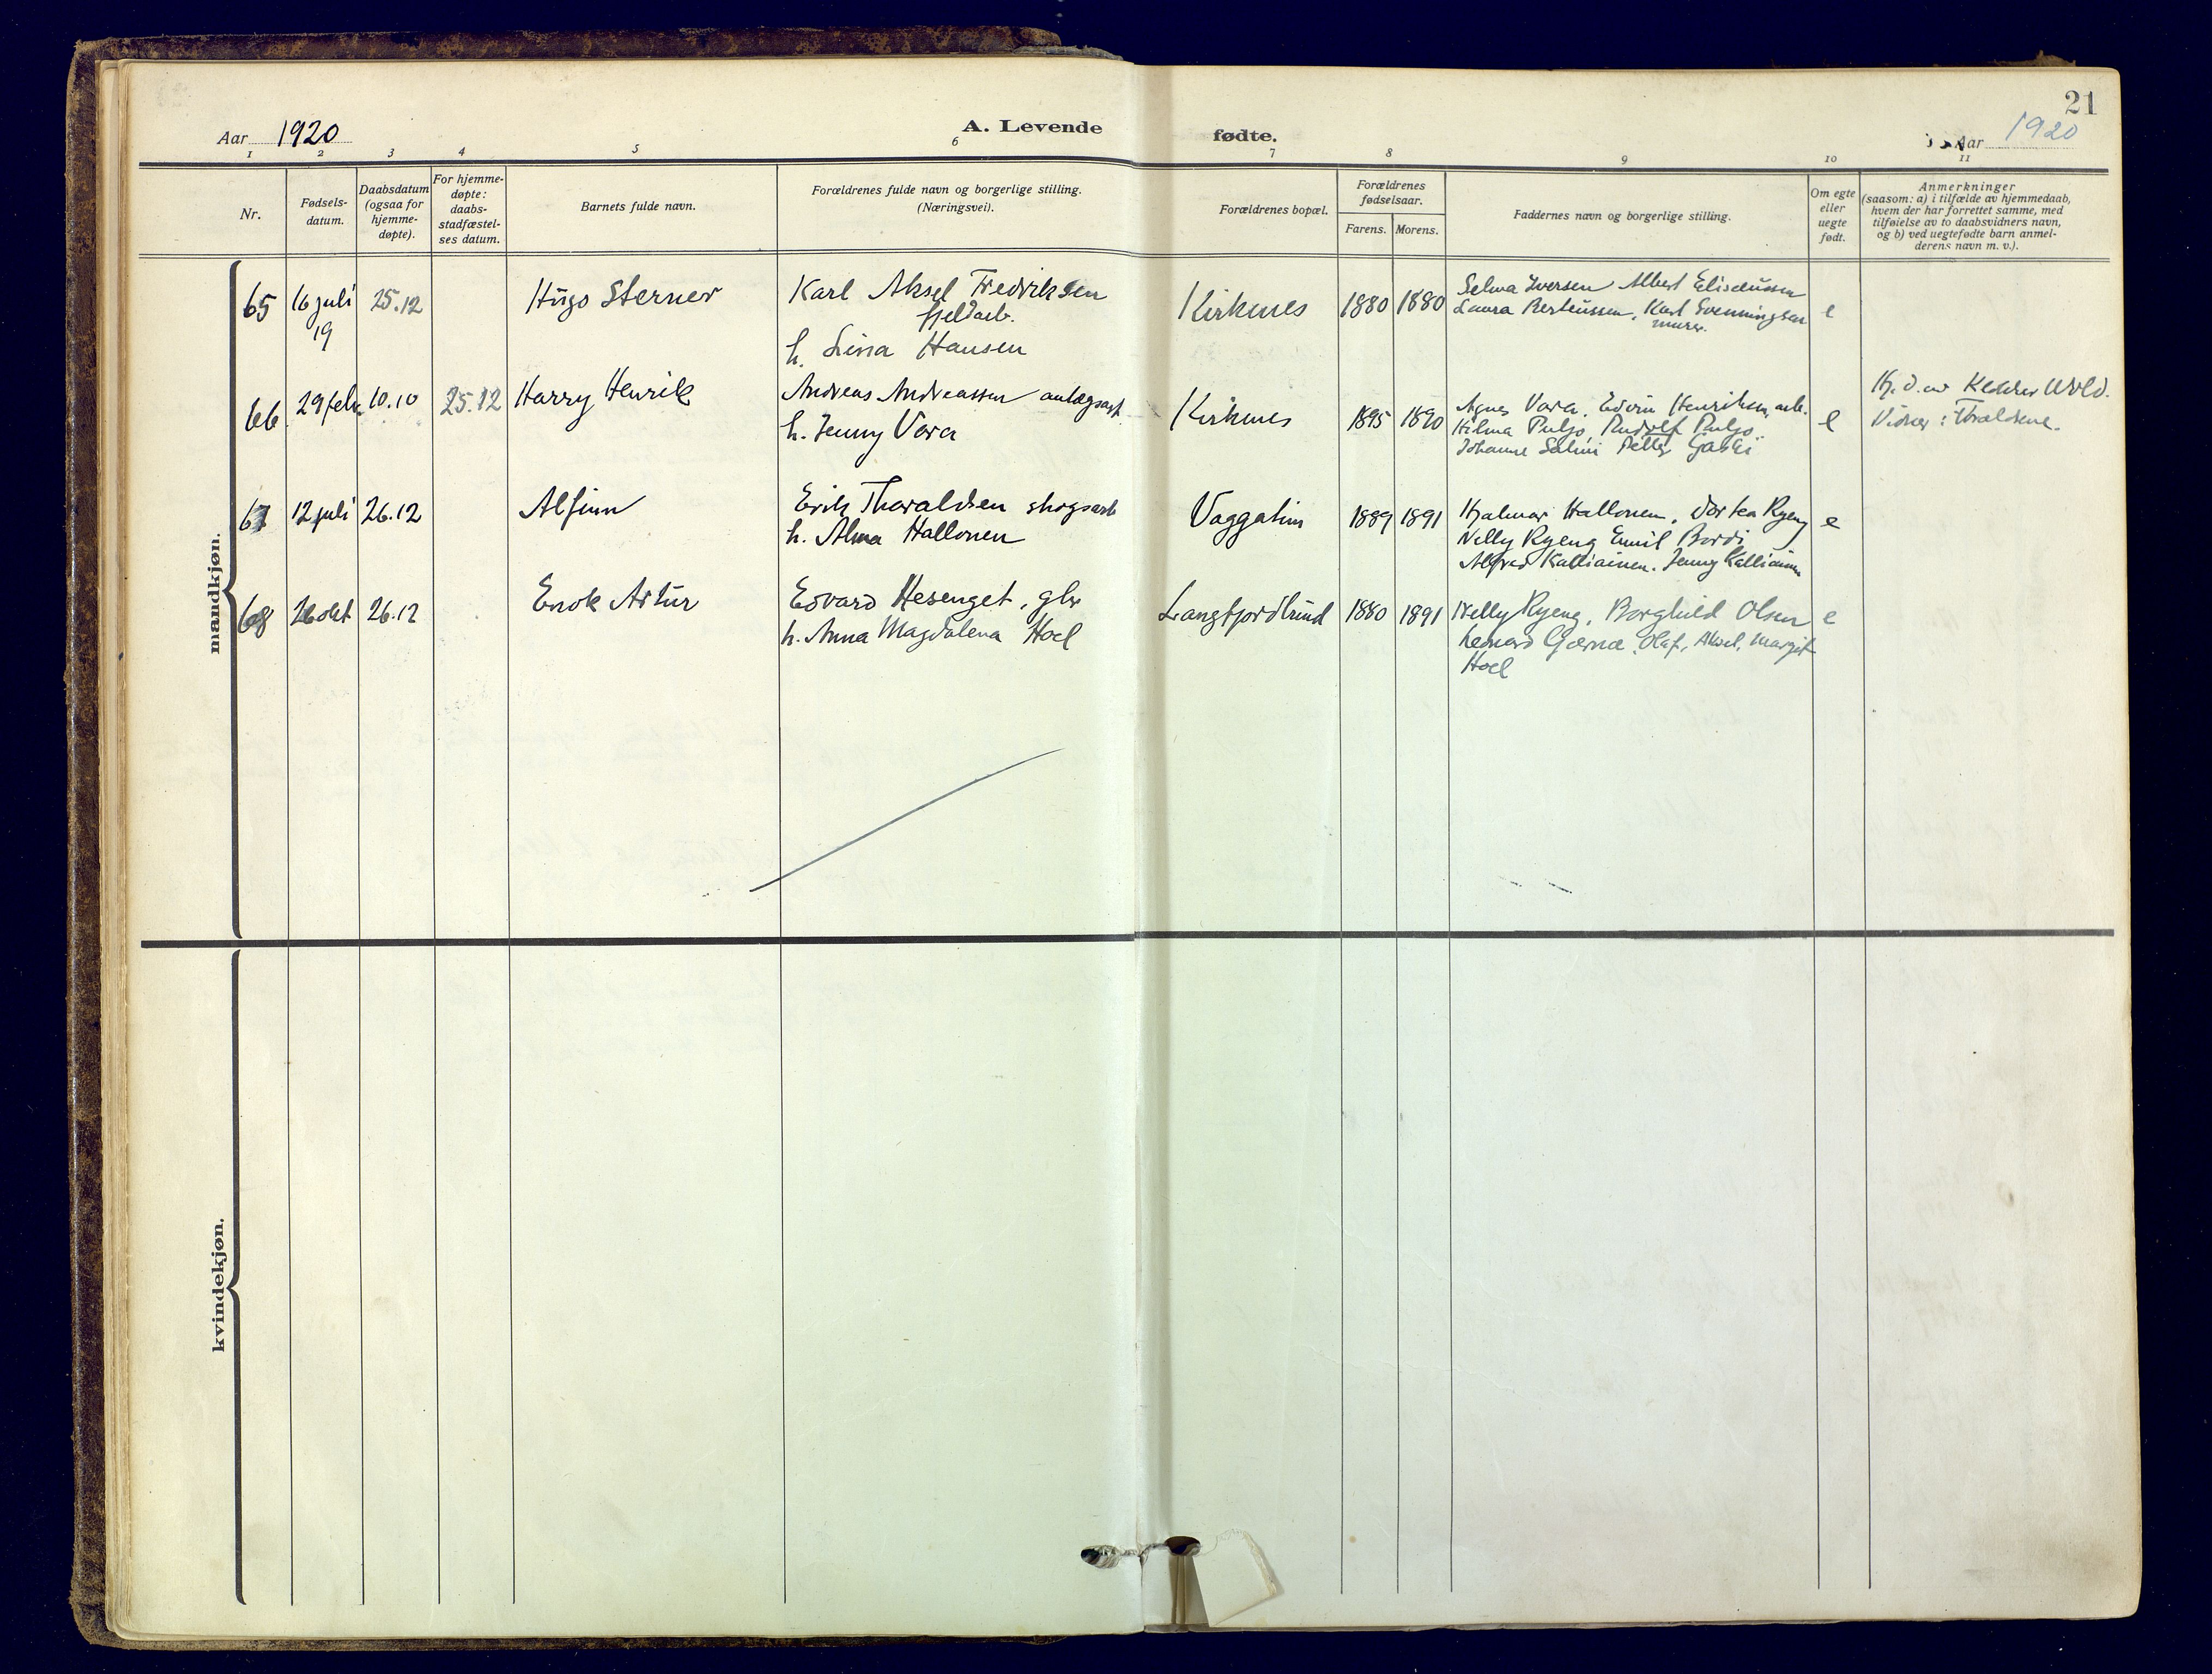 21
Aar 1920
A. Levende fødte.
Aar 1920
1 2 3 4 5 6 7 8 9 10 11
Nr.
Fødsels-
datum.
Daabsdatum
(ogsaa for
hjemme-
døpte).
For hjemme-
døpte:
daabs-
stadfæstel-
ses datum.
Barnets fulde navn.
Forældrenes fulde navn og borgerlige stilling.
(Næringsvei).
Forældrenes bopæl.
Forældrenes
fødselsaar.
Farens. Morens.
Faddernes navn og borgerlige stilling.
Om egte
eller
uegte
født.
Anmerkninger
(saasom: a) i tilfælde av hjemmedaab,
hvem der har forrettet samme, med
tilføielse av to daabsvidners navn,
og b) ved uegtefødte barn anmel-
derens navn m. v.).
mandkjøn.
65 16 juli 25.12 Hugo Sterner Karl Aksel Fredriksen Kirkenes 1880 1880 Selma Iversen Albert Eliseussen e
19 fjeldarb. Laura Berteussen, Karl Svenningsen
h. Lina Hansen murer.
66 29 feb 10.10 25.12 Harry Henrik Andreas Andreassen anlægsarb. Kirkenes 1895 1890 Agnes Vara, Edvin Henriksen, arb. e Hj. d. av Uvld.
h. Jenny Vara Hilma Puljo, Rudolf Puljo Vidner:
Johanne Salmi Petter Gaski
67 12 juli 26.12 Alfinn Erik Tharaldsen skogsarb Vaggatim 1889 1891 Hjalmar Hallonen, Dortea Ryeng e
h. Alma Hallonen Nelly Ryeng Emil Bordi
Alfred Kalliainen. Jenny Kalliainen
68 26 okt 26.12 Enok Artur Edvard Hesenget, gbr Langfjordbund 1880 1891 Nelly Ryeng, Borghild Olsen e
h. Anna Magdalena Hoel Leonard Gjernæ, Olaf, Aksel, Margit
Hoel
kvindekjøn.